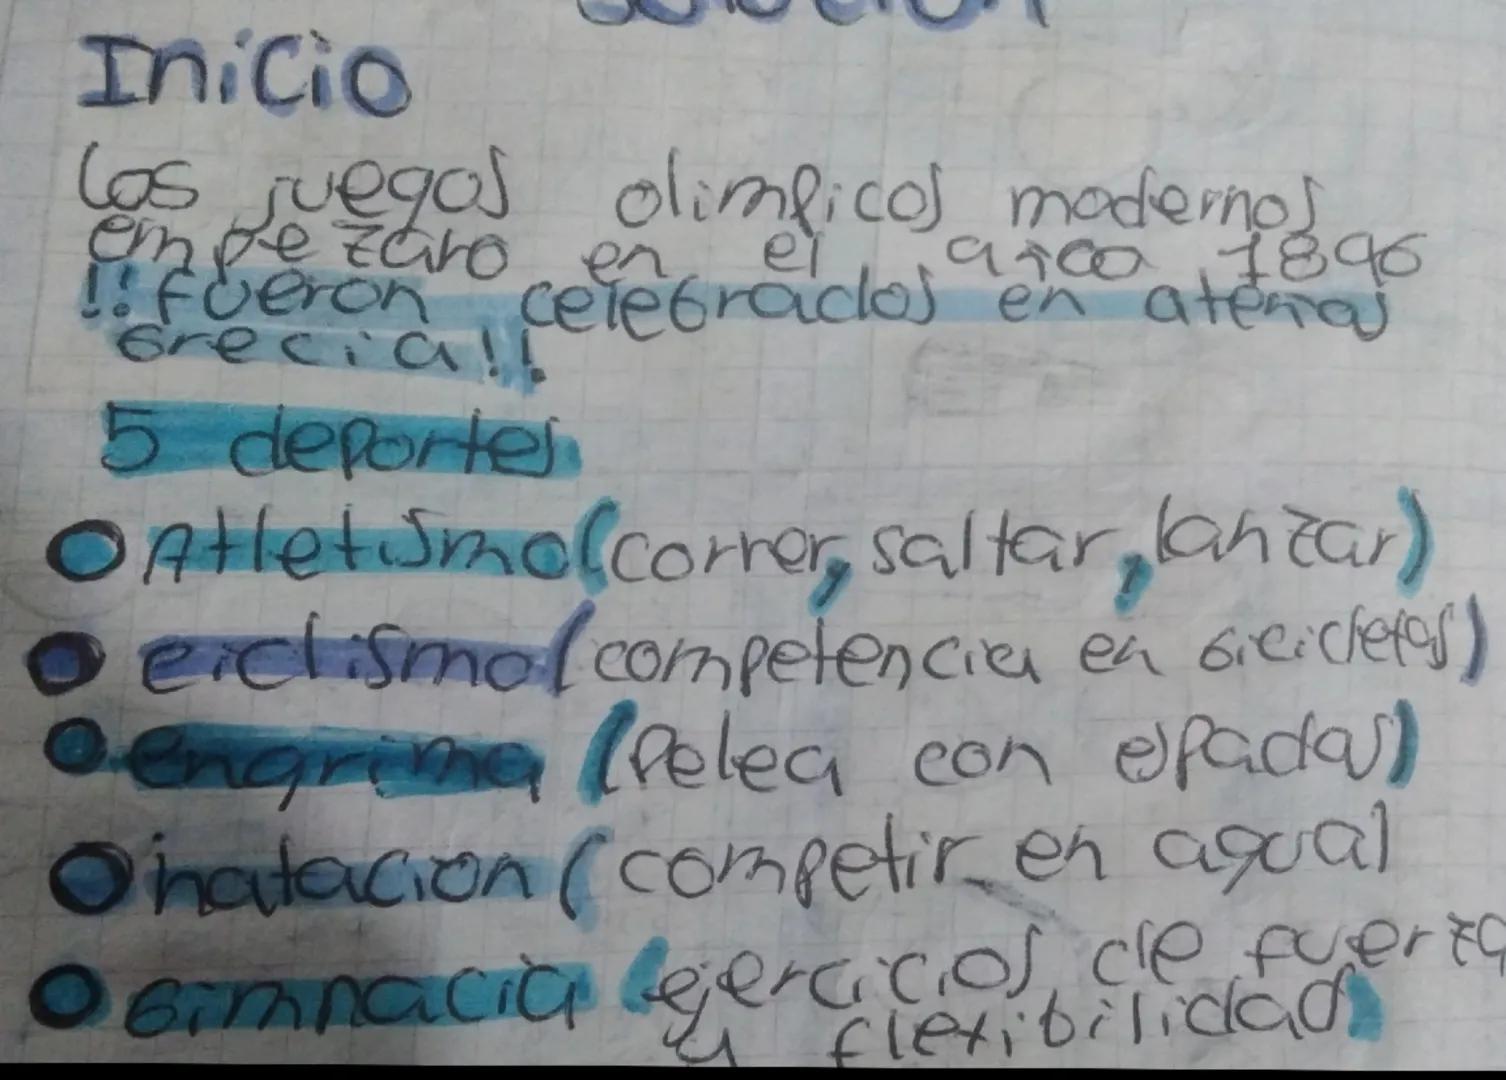 solución
Inicio
los juegos olimpicos modernos
empezaro en el año 1896
!!fueron celebrados en atenas
Grecia!!
5 deportes
Atletismo (correr, saltar, lanzar)
ciclismo (competencia en bicicletas)
engrima (Pelea con espadas)
natacion (competir en agua)
Gimnacia (ejercicios de fuerza
y flexibilidad)